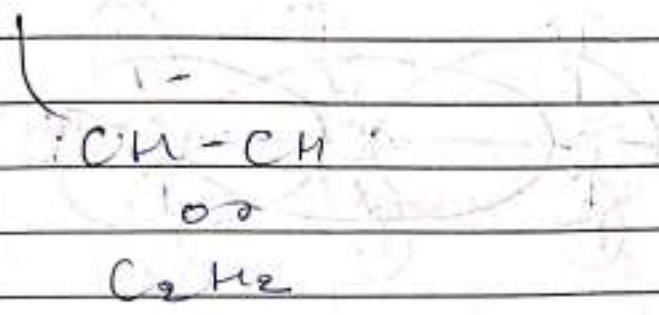 CH - CH
or
C₂H₂